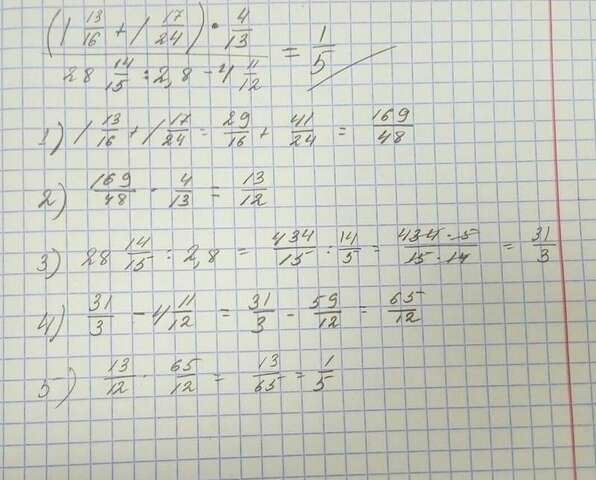 (1 13/16 + 1 17/24) · 4/13
28 14/15 : 2,8 - 4 11/12 = 1/5
1) 1 13/16 + 1 17/24 = 29/16 + 41/24 = 169/48
2) 169/48 · 4/13 = 13/12
3) 28 14/15 : 2,8 = 434/15 : 14/5 = 434·5/15·14 = 31/3
4) 31/3 - 4 11/12 = 31/3 - 59/12 = 65/12
5) 13/12 : 65/12 = 13/65 = 1/5